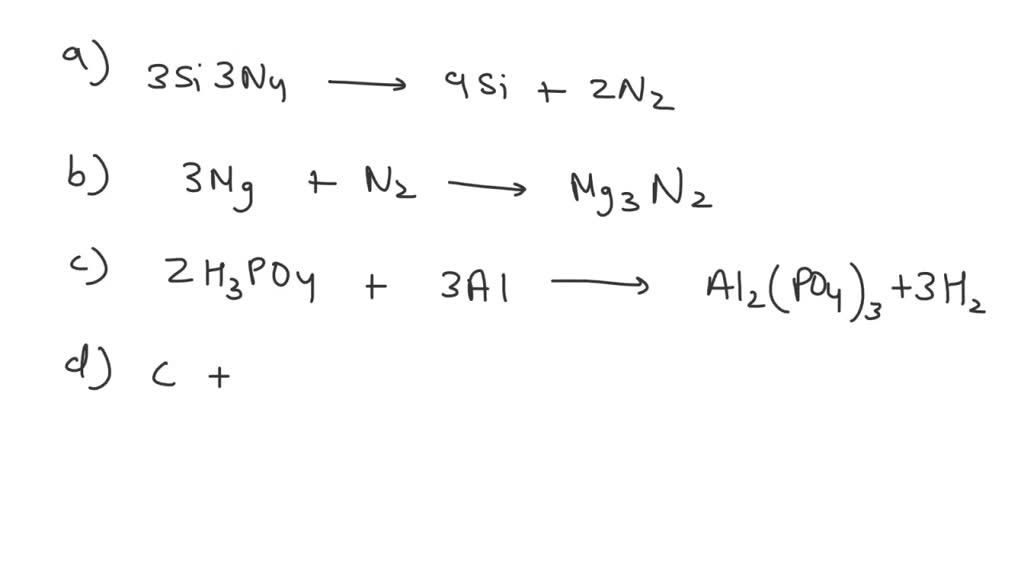 a) 3Si3N4 → 9Si + 2N2
b) 3Mg + N2 → Mg3N2
c) 2H3PO4 + 3Al → Al2(PO4)3 + 3H2
d) C +